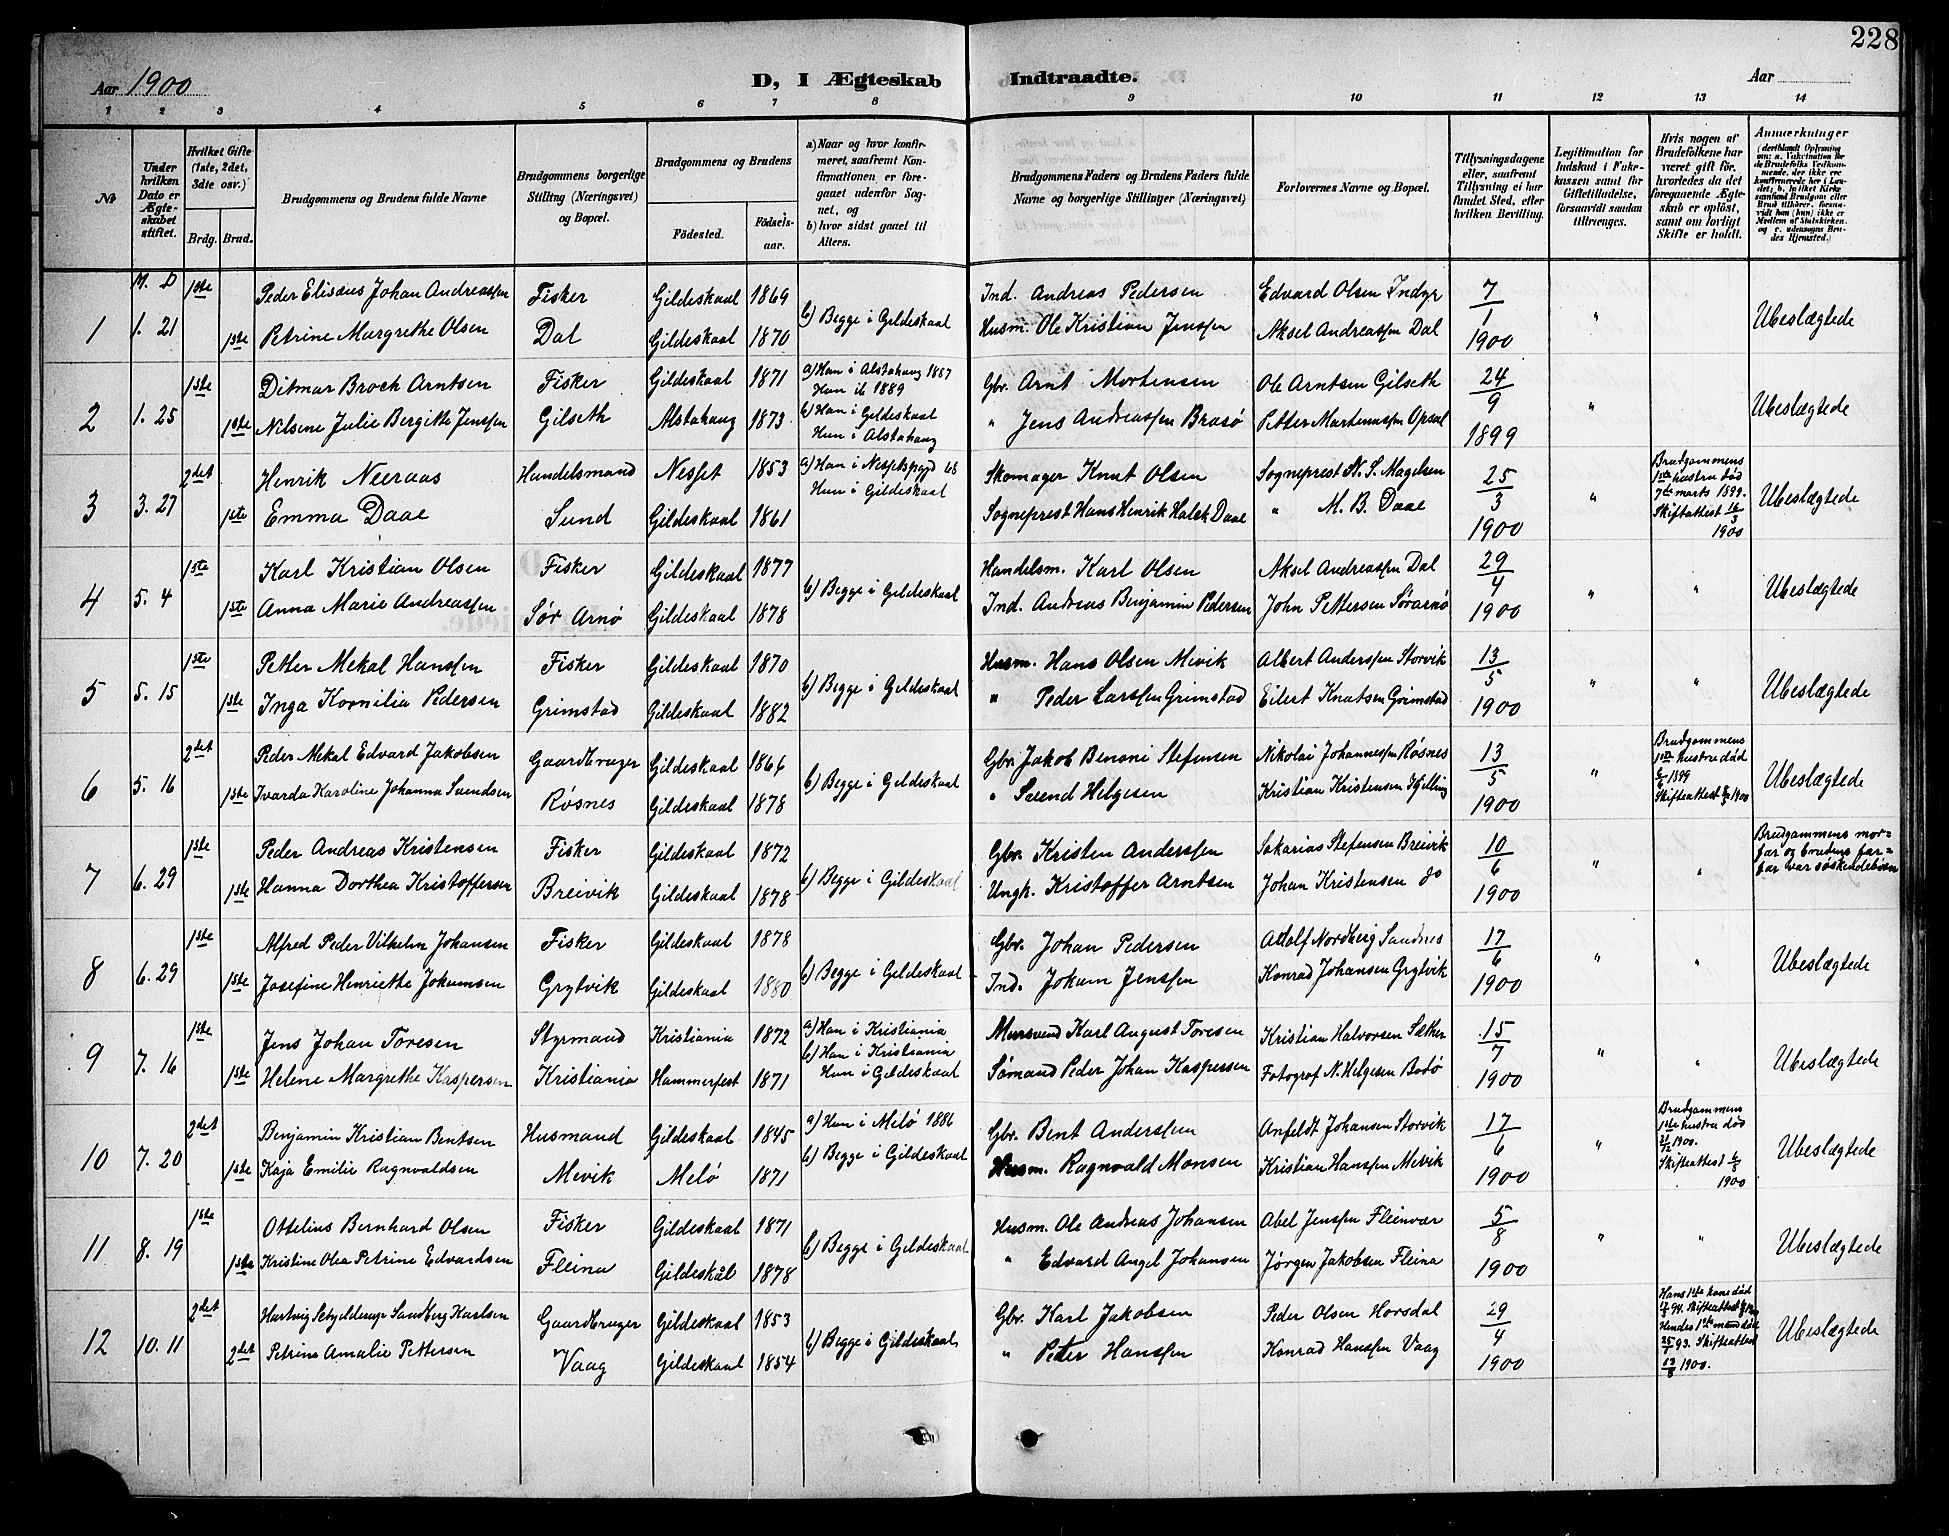 228
Aar 1900
D, I Ægteskab Indtraadte.
Aar
1 2 3 4 5 6 7 8 9 10 11 12 13 14
Nr.
Under hvilken Dato er Ægteskabet stiftet.
Hvilket Gifte (1ste, 2det, 3die osv.)
Brdg. Brud.
Brudgommens og Brudens fulde Navne
Brudgommens borgerlige Stilling (Næringsvei) og Bopæl.
Brudgommens og Brudens
Fødested. Fødsels-aar.
a) Naar og hvor konfirmeret, saafremt Konfirmationen er foregaaet udenfor Sognet, og
b) hvor sidst gaaet til Alters.
Brudgommens Faders og Brudens Faders fulde Navne og borgerlige Stillinger (Næringsvei)
Forlovernes Navne og Bopæl.
Tillysningsdagene eller, saafremt Tillysning ei har fundet Sted, efter hvilken Bevilling.
Legitimation for Indskud i Enkekassen samt for Giftetilladelse, forsaavidt saadan tiltrænges.
Hvis nogen af Brudefolkene har været gift før, hvorledes da det foregaaende Ægteskab er opløst, samt om lovligt Skifte er holdt.
Anmærkninger (deriblandt Oplysning om: a. Vakcination for de Brudefolks Vedkommende, der ikke ere konfirmerede her i Landet; b. hvilket Kirkesamfund Brudgom eller Brud tilhører, forsaavidt han (hun) ikke er Medlem af Statskirken, og c. udensogns Brudes Hjemsted.)
M. D
1 1. 21 1ste Peder Elisæus Johan Andreassen Fisker Gildeskaal 1869 b) Begge i Gildeskaal Ind. Andreas Pedersen Edvard Olsen Indyr 7/1 " Ubeslægtede
1ste Petrine Margrethe Olsen Dal Gildeskaal 1870 Husm. Ole Kristian Jenssen Aksel Andreassen Dal 1900
2 1. 25 1ste Ditmar Brock Arntsen Fisker Gildeskaal 1871 a) Han i Alstahaug 1887 Hun ib 1889 Gbr. Arnt Mortensen Ole Arntsen Gilseth 24/9 " Ubeslægtede
1ste Nilsine Julie Bergitte Jenssen Gilseth Alstahaug 1873 b) Han i Gildeskaal Hun i Alstahaug " Jens Andreassen Brasø Petter Martenussen Opsal 1899
3 3. 27 2det Henrik Neeraas Handelsmand Nesset 1853 a) Han i Nessetspgjd 68 Hun i Gildeskaal Skomager Knut Olsen Sogneprest N. S. Magelsen 25/3 " Brudgommens 1ste hustru død 7de marts 1899. Skifteattest 16/3 1900 Ubeslægtede
1ste Emma Daae Sund Gildeskaal 1861 Sogneprest Hans Henrik Halck Daae " M. B. Daae 1900
4 5. 4 1ste Karl Kristian Olsen Fisker Gildeskaal 1877 b) Begge i Gildeskaal Handelsm. Karl Olsen Aksel Andreassen Dal 29/4 " " Ubeslægtede
1ste Anna Marie Andreassen Sør Arnø Gildeskaal 1878 Ind. Andreas Benjamin Pedersen John Pettersen Sørarnø 1900
5 5. 15 1ste Petter Mekal Hanssen Fisker Gildeskaal 1870 b) Begge i Gildeskaal Husm. Hans Olsen Mevik Albert Anderssen Storvik 13/5 " " Ubeslægtede
1ste Inga Kornilia Pedersen Grimstad Gildeskaal 1882 " Peder Larssen Grimstad Eilert Knutsen Grimstad 1900
6 5. 16 2det Peder Mekal Edvard Jakobsen Gaardbruger Gildeskaal 1864 b) Begge i Gildeskaal Gbr. Jakob Benoni Stefensen Nikolai Johannessen Røsnes 13/5 " Brudgommens 1ste hustru død 6/6 1899 Skifteattest 1900 Ubeslægtede
1ste Ivarda Karoline Johanna Svendsen Røsnes Gildeskaal 1878 " Svend Helgesen Kristian Kristensen Kjelling 1900
7 6. 29 1ste Peder Andreas Kristensen Fisker Gildeskaal 1872 b) Begge i Gildeskaal Gbr. Kristen Anderssen Sakarias Stefensen Breivik 10/6 " " Brudgommens morfar og brudens farfar var søskendebørn
1ste Hanna Dorthea Kristoffersen Breivik Gildeskaal 1878 Ungk. Kristoffer Arntsen Johan Kristensen do 1900
8 6. 29 1ste Alfred Peder Vilhelm Johansen Fisker Gildeskaal 1878 b) Begge i Gildeskaal Gbr. Johan Pedersen Adolf Nordberg Sandnes 17/6 " " Ubeslægtede
1ste Josefine Henriethe Jokumsen Grytvik Gildeskaal 1880 Ind. Jokum Jenssen Konrad Johansen Grytvik 1900
9 7. 16 1ste Jens Johan Toresen Styrmand Kristiania 1872 a) Han i Kristiania Mursvend Karl August Toresen Kristian Halvorsen Sæther 15/7 " " Ubeslægtede
1ste Helene Margrethe Kaspersen Kristiania Hammerfest 1871 b) Han i Kristiania Hun i Gildeskaal Sømand Peder Johan Kaspersen Fotograf N. Helgesen Bodø 1900
10 7. 20 2det Benjamin Kristian Bentsen Husmand Gildeskaal 1845 a) Hun i Melø 1886 Gbr. Bent Anderssen Anfeldt Johansen Storvik 17/6 " Brudgommens 1ste hustru død 1900. Skifteattest 6/6 1900 Ubeslægtede
1ste Kaja Emilie Ragnvaldsen Mevik Melø 1871 b) Begge i Gildeskaal Husm. Ragnvald Monsen Kristian Hanssen Mevik 1900
11 8. 19 1ste Ottelius Bernhard Olsen Fisker Gildeskaal 1871 b) Begge i Gildeskaal Husm. Ole Andreas Johansen Abel Jenssen Fleinvær 5/8 " " Ubeslægtede
1ste Kristine Olea Petrine Edvardsen Fleina Gildeskål 1878 " Edvard Angel Johansen Jørgen Jakobsen Fleina 1900
12 10. 11 2det Hartvig Schjelderup Sandberg Karlsen Gaardbruger Gildeskaal 1853 b) Begge i Gildeskaal Gbr. Karl Jakobsen Peder Olsen Horsdal 29/4 Hans 1ste kone død 94. Skifteattest Hendes 1ste mand død 93. Skifteattest 13/8 1900. Ubeslægtede
2det Petrine Amalie Pettersen Vaag Gildeskaal 1854 " Peter Hanssen Konrad Hanssen Vaag 1900